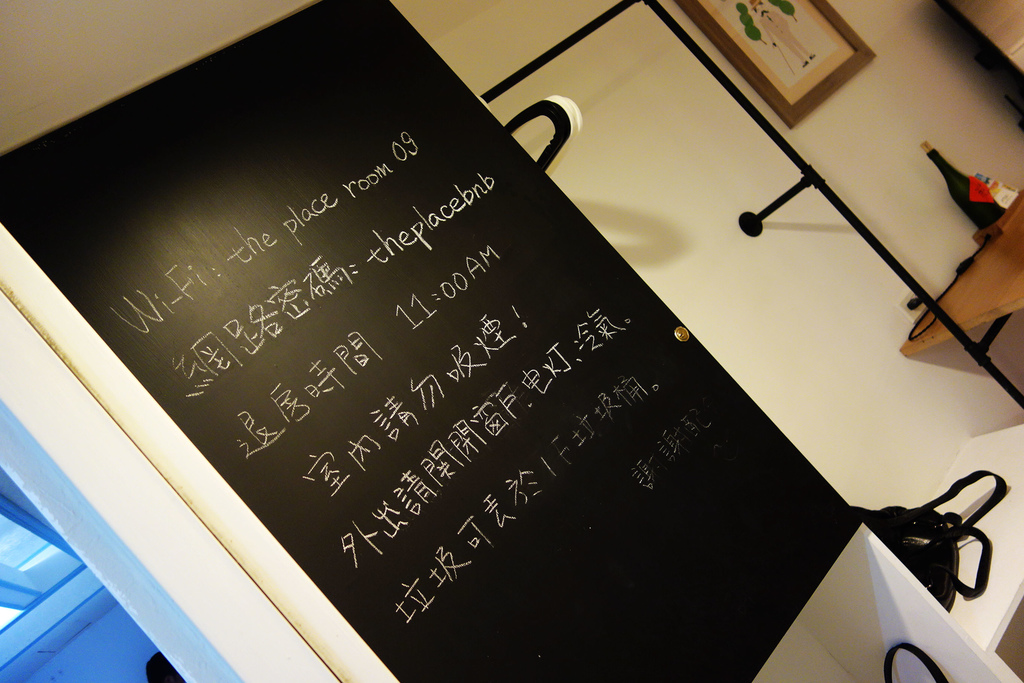 Wi-Fi: the place room 09
網路密碼: theplacebnb
退房時間 11:00AM
室內請勿吸煙!
外出請關閉窗戶、电灯、冷氣。
垃圾可丟於1F垃圾桶。
謝謝配合~